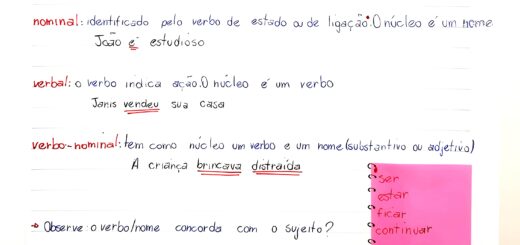 nominal: identificado pelo verbo de estado ou de ligação. O núcleo é um nome
João é estudioso
verbal: o verbo indica ação. O núcleo é um verbo
Janis vendeu sua casa
verbo-nominal: tem como núcleo um verbo e um nome (substantivo ou adjetivo)
A criança brincava distraída
ser
estar
ficar
→ Observe: o verbo/nome concorda com o sujeito?
continuar